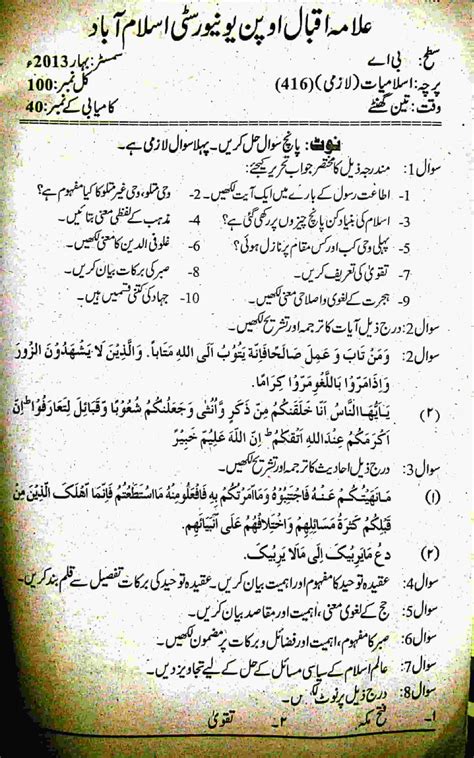 علامہ اقبال اوپن یونیورسٹی اسلام آباد
سطح: بی اے سمسٹر: بہار 2013ء
پرچہ: اسلامیات (لازمی) (416) کل نمبر: 100
وقت: تین گھنٹے کامیابی کے نمبر: 40
نوٹ: پانچ سوال حل کریں۔ پہلا سوال لازمی ہے۔
سوال 1: مندرجہ ذیل کا مختصر جواب تحریر کیجئے:
1- اطاعت رسول کے بارے میں ایک آیت لکھیں۔ 2- وحی متلو، وحی غیر متلو کا کیا مفہوم ہے؟
3- اسلام کی بنیاد کن پانچ چیزوں پر رکھی گئی ہے؟ 4- مذہب کے لفظی معنی بتائیں۔
5- پہلی وحی کب اور کس مقام پر نازل ہوئی؟ 6- غلو فی الدین کا معنی لکھیں۔
7- تقویٰ کی تعریف کریں۔ 8- صبر کی برکات بیان کریں۔
9- ہجرت کے لغوی و اصلاحی معنی لکھیں۔ 10- جہاد کی کتنی قسمیں ہیں۔
سوال 2: درج ذیل آیات کا ترجمہ اور تشریح لکھیں۔
سوال 2: وَمَنْ تَابَ وَ عَمِلَ صَالِحًا فَاِنَّهٗ يَتُوْبُ اَلَى اللهِ مَتَاباً. وَالَّذِيْنَ لَا يَشْهَدُوْنَ الزُّوْرَ
وَاِذَامَرُّوْا بِاللَّغْوِمَرُّوْا كِرَامًا.
(۲) يٰۤاَيُّهَاالنَّاسُ اَنَّا خَلَقْنٰكُمْ مِنْ ذَكَرٍ وَّاُنْثٰى وَجَعَلْنٰكُمْ شُعُوْبًا وَقَبَائِلَ لِتَعَارَفُوْا اِنَّ
اَكْرَمَكُمْ عِنْدَاللهِ اَتْقٰكُمْ اِنَّ اللهَ عَلِيْمٌ خَبِيْرٌ
سوال 3: درج ذیل احادیث کا ترجمہ اور تشریح لکھیں۔
(ا) مَانَهَيْتُكُمْ عَنْهُ فَاجْتَنِبُوْهُ وَمَااَمَرْتُكُمْ بِهٖ فَافْعَلُوْمِنْهُ مَااسْتَطَعْتُمْ فَاِنَّمَا اَهْلَكَ الَّذِيْنَ مِنْ
قَبْلِكُمْ كَثْرَةُ مَسَائِلِهِمْ وَاخْتِلَافُهُمْ عَلٰى اَنْبِيَائِهِمْ.
(۲) دَعْ مَايَرِيْبُكَ اِلٰى مَالَا يَرِيْبُكَ.
سوال 4: عقیدہ توحید کا مفہوم اور اہمیت بیان کریں۔ عقیدہ توحید کی برکات تفصیل سے قلم بند کریں۔
سوال 5: حج کے لغوی معنی، اہمیت اور مقاصد بیان کریں۔
سوال 6: صبر کا مفہوم، اہمیت اور فضائل و برکات پر مضمون لکھیں۔
سوال 7: عالم اسلام کے سیاسی مسائل کے حل کے لیے تجاویز دیں۔
سوال 8: درج ذیل پر نوٹ لکھیں۔
۱- فتح مکہ ۲- تقویٰ